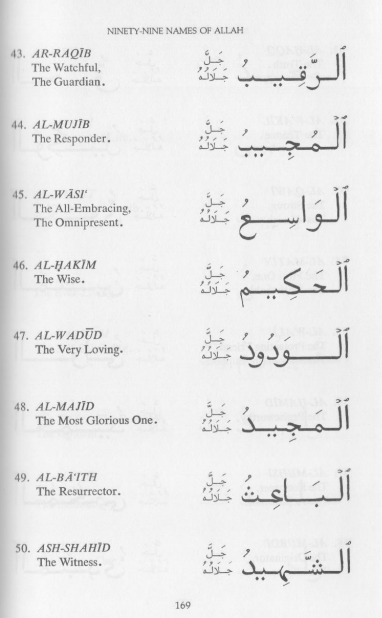 NINETY-NINE NAMES OF ALLAH
43. AR-RAQĪB
The Watchful,
The Guardian.
اَلرَّقِيبُ جَلَّ جَلَالُهُ
44. AL-MUJĪB
The Responder.
اَلْمُجِيبُ جَلَّ جَلَالُهُ
45. AL-WĀSI'
The All-Embracing,
The Omnipresent.
اَلْوَاسِعُ جَلَّ جَلَالُهُ
46. AL-ḤAKĪM
The Wise.
اَلْحَكِيمُ جَلَّ جَلَالُهُ
47. AL-WADŪD
The Very Loving.
اَلْوَدُودُ جَلَّ جَلَالُهُ
48. AL-MAJĪD
The Most Glorious One.
اَلْمَجِيدُ جَلَّ جَلَالُهُ
49. AL-BĀ'ITH
The Resurrector.
اَلْبَاعِثُ جَلَّ جَلَالُهُ
50. ASH-SHAHĪD
The Witness.
اَلشَّهِيدُ جَلَّ جَلَالُهُ
169